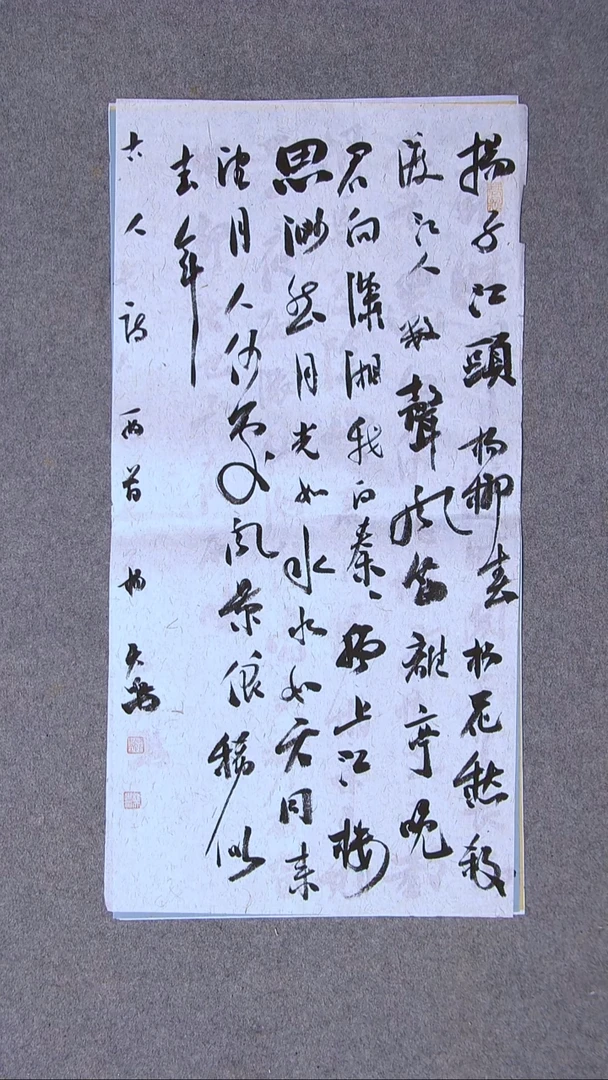 揚子江頭楊柳春楊花愁殺
渡江人數聲風笛離亭晚
君向瀟湘我向秦獨上江樓
思渺然月光如水水如天同來
望月人何處風景依稀似
去年
古人詩兩首楊